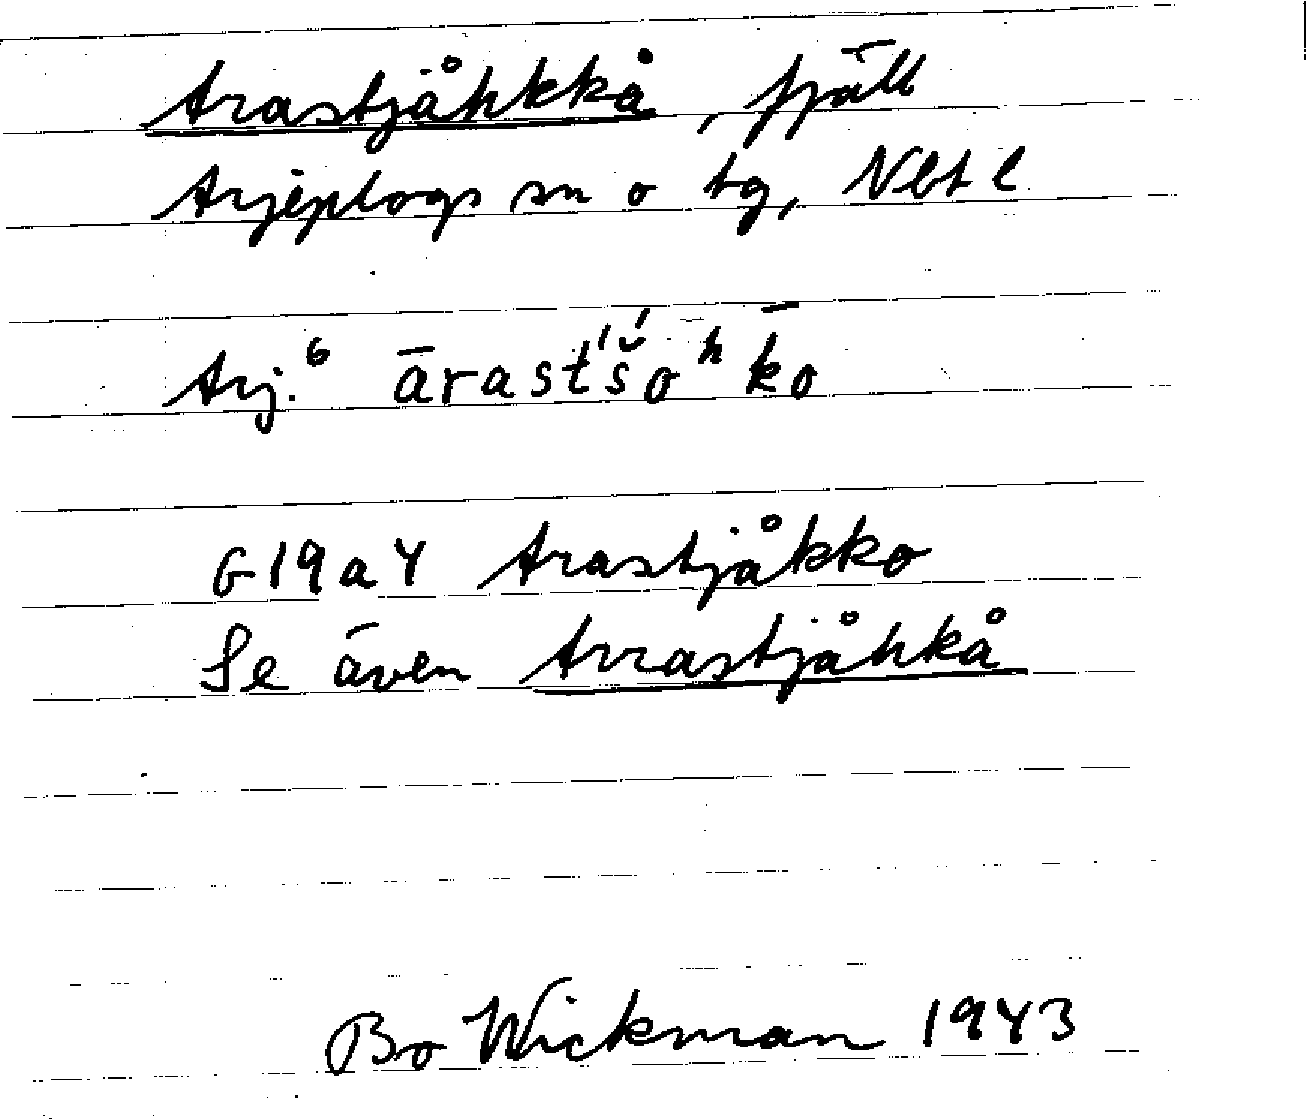 Arastjåhkkå, fjäll
Arjeplogs sn o tg, Nbt l
Arj.⁶ ārast'š́oʰk̄o
G 19 a 4 Arastjåkko
Se även Arrastjåhkå
Bo Wickman 1943